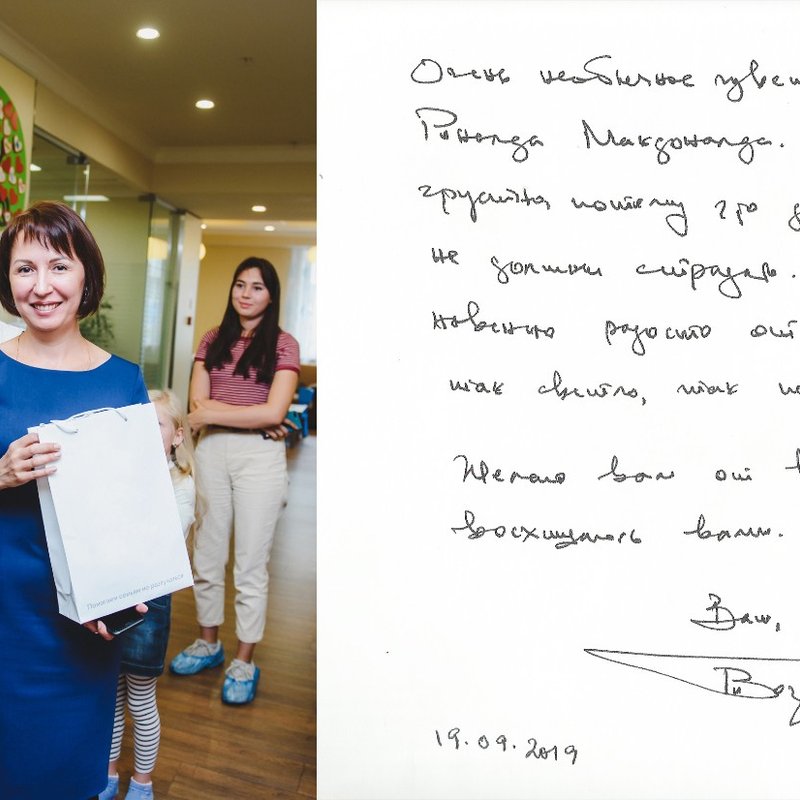 Помогаем семьям не разлучаться
Очень необычное
Роналда Макдоналда.
грустна потому что
не должны страдать.
от
так светло, так
Желаю вам от
Восхищаюсь вами.
Ваш,
19.09.2019